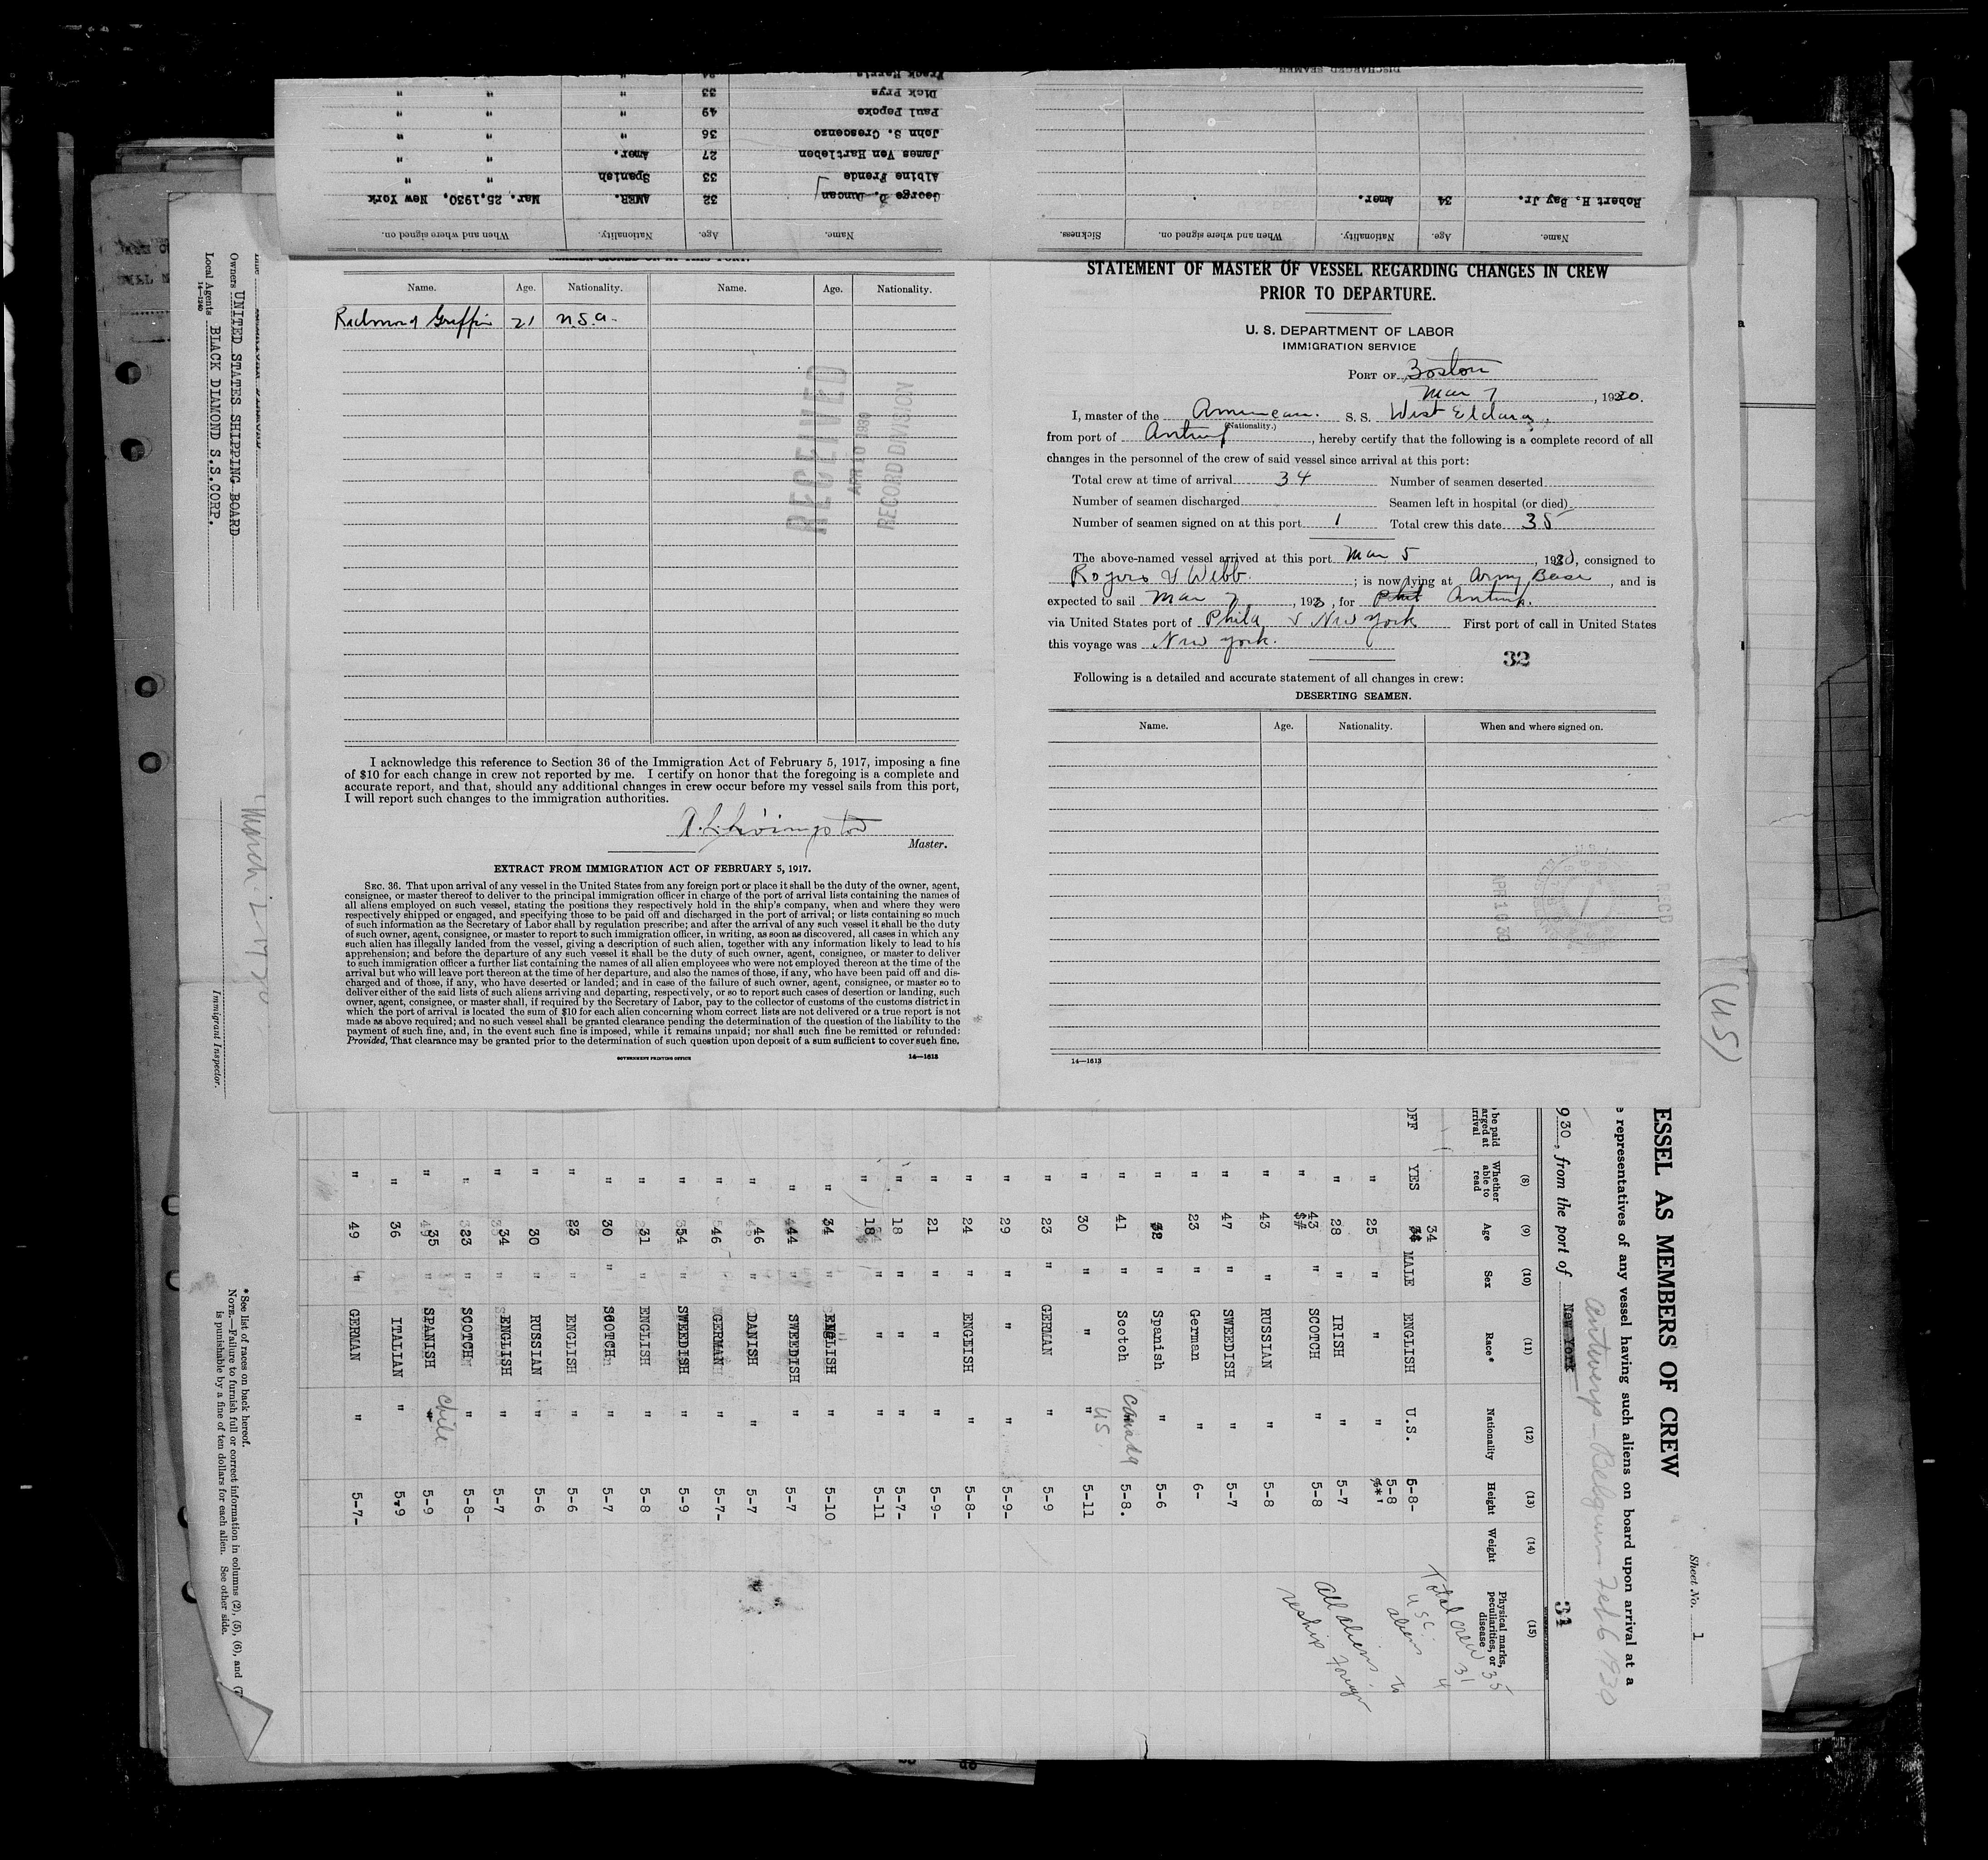 DISCHARGED SEAMEN
Name. Age. Nationality. When and where signed on. Sickness.
Robert H. Day Jr. 34 Amer.
Name. Age. Nationality. When and where signed on.
George D. Duncan 32 AMER. Mar. 25,1930, New York
Albine Frende 33 Spanish " "
James Von Hartleben 27 Amer. " "
John S. Crescenzo 36 " " "
Paul Popoke 49 " " "
Dick Prys 33 " " "
Name. Age. Nationality. Name. Age. Nationality.
Richmond Griffin 21 U.S.A.
RECEIVED
APR 10 1930
RECORD DIVISION
I acknowledge this reference to Section 36 of the Immigration Act of February 5, 1917, imposing a fine
of $10 for each change in crew not reported by me. I certify on honor that the foregoing is a complete and
accurate report, and that, should any additional changes in crew occur before my vessel sails from this port,
I will report such changes to the immigration authorities.
A. L. Livingston
Master.
EXTRACT FROM IMMIGRATION ACT OF FEBRUARY 5, 1917.
SEC. 36. That upon arrival of any vessel in the United States from any foreign port or place it shall be the duty of the owner, agent,
consignee, or master thereof to deliver to the principal immigration officer in charge of the port of arrival lists containing the names of
all aliens employed on such vessel, stating the positions they respectively hold in the ship's company, when and where they were
respectively shipped or engaged, and specifying those to be paid off and discharged in the port of arrival; or lists containing so much
of such information as the Secretary of Labor shall by regulation prescribe; and after the arrival of any such vessel it shall be the duty
of such owner, agent, consignee, or master to report to such immigration officer, in writing, as soon as discovered, all cases in which any
such alien has illegally landed from the vessel, giving a description of such alien, together with any information likely to lead to his
apprehension; and before the departure of any such vessel it shall be the duty of such owner, agent, consignee, or master to deliver
to such immigration officer a further list containing the names of all alien employees who were not employed thereon at the time of the
arrival but who will leave port thereon at the time of her departure, and also the names of those, if any, who have been paid off and dis-
charged and of those, if any, who have deserted or landed; and in case of the failure of such owner, agent, consignee, or master so to
deliver either of the said lists of such aliens arriving and departing, respectively, or so to report such cases of desertion or landing, such
owner, agent, consignee, or master shall, if required by the Secretary of Labor, pay to the collector of customs of the customs district in
which the port of arrival is located the sum of $10 for each alien concerning whom correct lists are not delivered or a true report is not
made as above required; and no such vessel shall be granted clearance pending the determination of the question of the liability to the
payment of such fine, and, in the event such fine is imposed, while it remains unpaid; nor shall such fine be remitted or refunded:
Provided, That clearance may be granted prior to the determination of such question upon deposit of a sum sufficient to cover such fine.
GOVERNMENT PRINTING OFFICE 14—1613
STATEMENT OF MASTER OF VESSEL REGARDING CHANGES IN CREW
PRIOR TO DEPARTURE.
U. S. DEPARTMENT OF LABOR
IMMIGRATION SERVICE
PORT OF Boston
Mar 7, 1930.
I, master of the American. S. S. West Eldara,
(Nationality.)
from port of Antwerp, hereby certify that the following is a complete record of all
changes in the personnel of the crew of said vessel since arrival at this port:
Total crew at time of arrival 34 Number of seamen deserted
Number of seamen discharged Seamen left in hospital (or died)
Number of seamen signed on at this port 1 Total crew this date 35
The above-named vessel arrived at this port Mar 5, 1930, consigned to
Rogers & Webb.; is now lying at Army Base, and is
expected to sail Mar 7, 193, for Phil Antwerp.
via United States port of Phila & New York First port of call in United States
this voyage was New York.
32
Following is a detailed and accurate statement of all changes in crew:
DESERTING SEAMEN.
Name. Age. Nationality. When and where signed on.
APR 10 30
REC'D
14—1613
(US)
Owners UNITED STATES SHIPPING BOARD
Local Agents BLACK DIAMOND S.S.CORP.
14—1240
Immigrant Inspector.
*See list of races on back hereof.
NOTE.—Failure to furnish full or correct information in columns (2), (5), (6), and (7)
is punishable by a fine of ten dollars for each alien. See other side.
Sheet No. 1
ESSEL AS MEMBERS OF CREW
representatives of any vessel having such aliens on board upon arrival at a
Antwerp - Belgium Feb 6 1930
9.30, from the port of New York 31
(8) (9) (10) (11) (12) (13) (14) (15)
Whether able to read Age Sex Race* Nationality Height Weight Physical marks, peculiarities, or disease
Total crew 35
U S C. 31
aliens 4
All aliens
reship foreign
OFF YES 34 MALE ENGLISH U.S. 5-8-
" 25 " " " 5-8
" 28 " IRISH " 5-7
" 43 " SCOTCH " 5-8
" 43 " RUSSIAN " 5-8
" 47 " SWEDISH " 5-7
" 23 " German " 6-
" 32 " Spanish " 5-6
" 41 " Scotch Canada 5-8.
" 30 " " " US 5-11
" 23 " GERMAN " 5-9
" 29 " " " 5-9-
" 24 " ENGLISH " 5-8-
" 21 " " " 5-9-
" 18 " " " 5-7-
" 18 " " " 5-11
" 34 " ENGLISH " 5-10
" 44 " SWEEDISH " 5-7
" 46 " DANISH " 5-7
" 46 " GERMAN " 5-7-
" 54 " SWEEDISH " 5-9
" 31 " ENGLISH " 5-8
" 30 " SCOTCH " 5-7
" 23 " ENGLISH " 5-6
" 30 " RUSSIAN " 5-6
" 34 " ENGLISH " 5-7
" 23 " SCOTCH " 5-8-
" 35 " SPANISH " Chile 5-9
" 36 ITALIAN " 5-9
" 49 " GERMAN " 5-7-